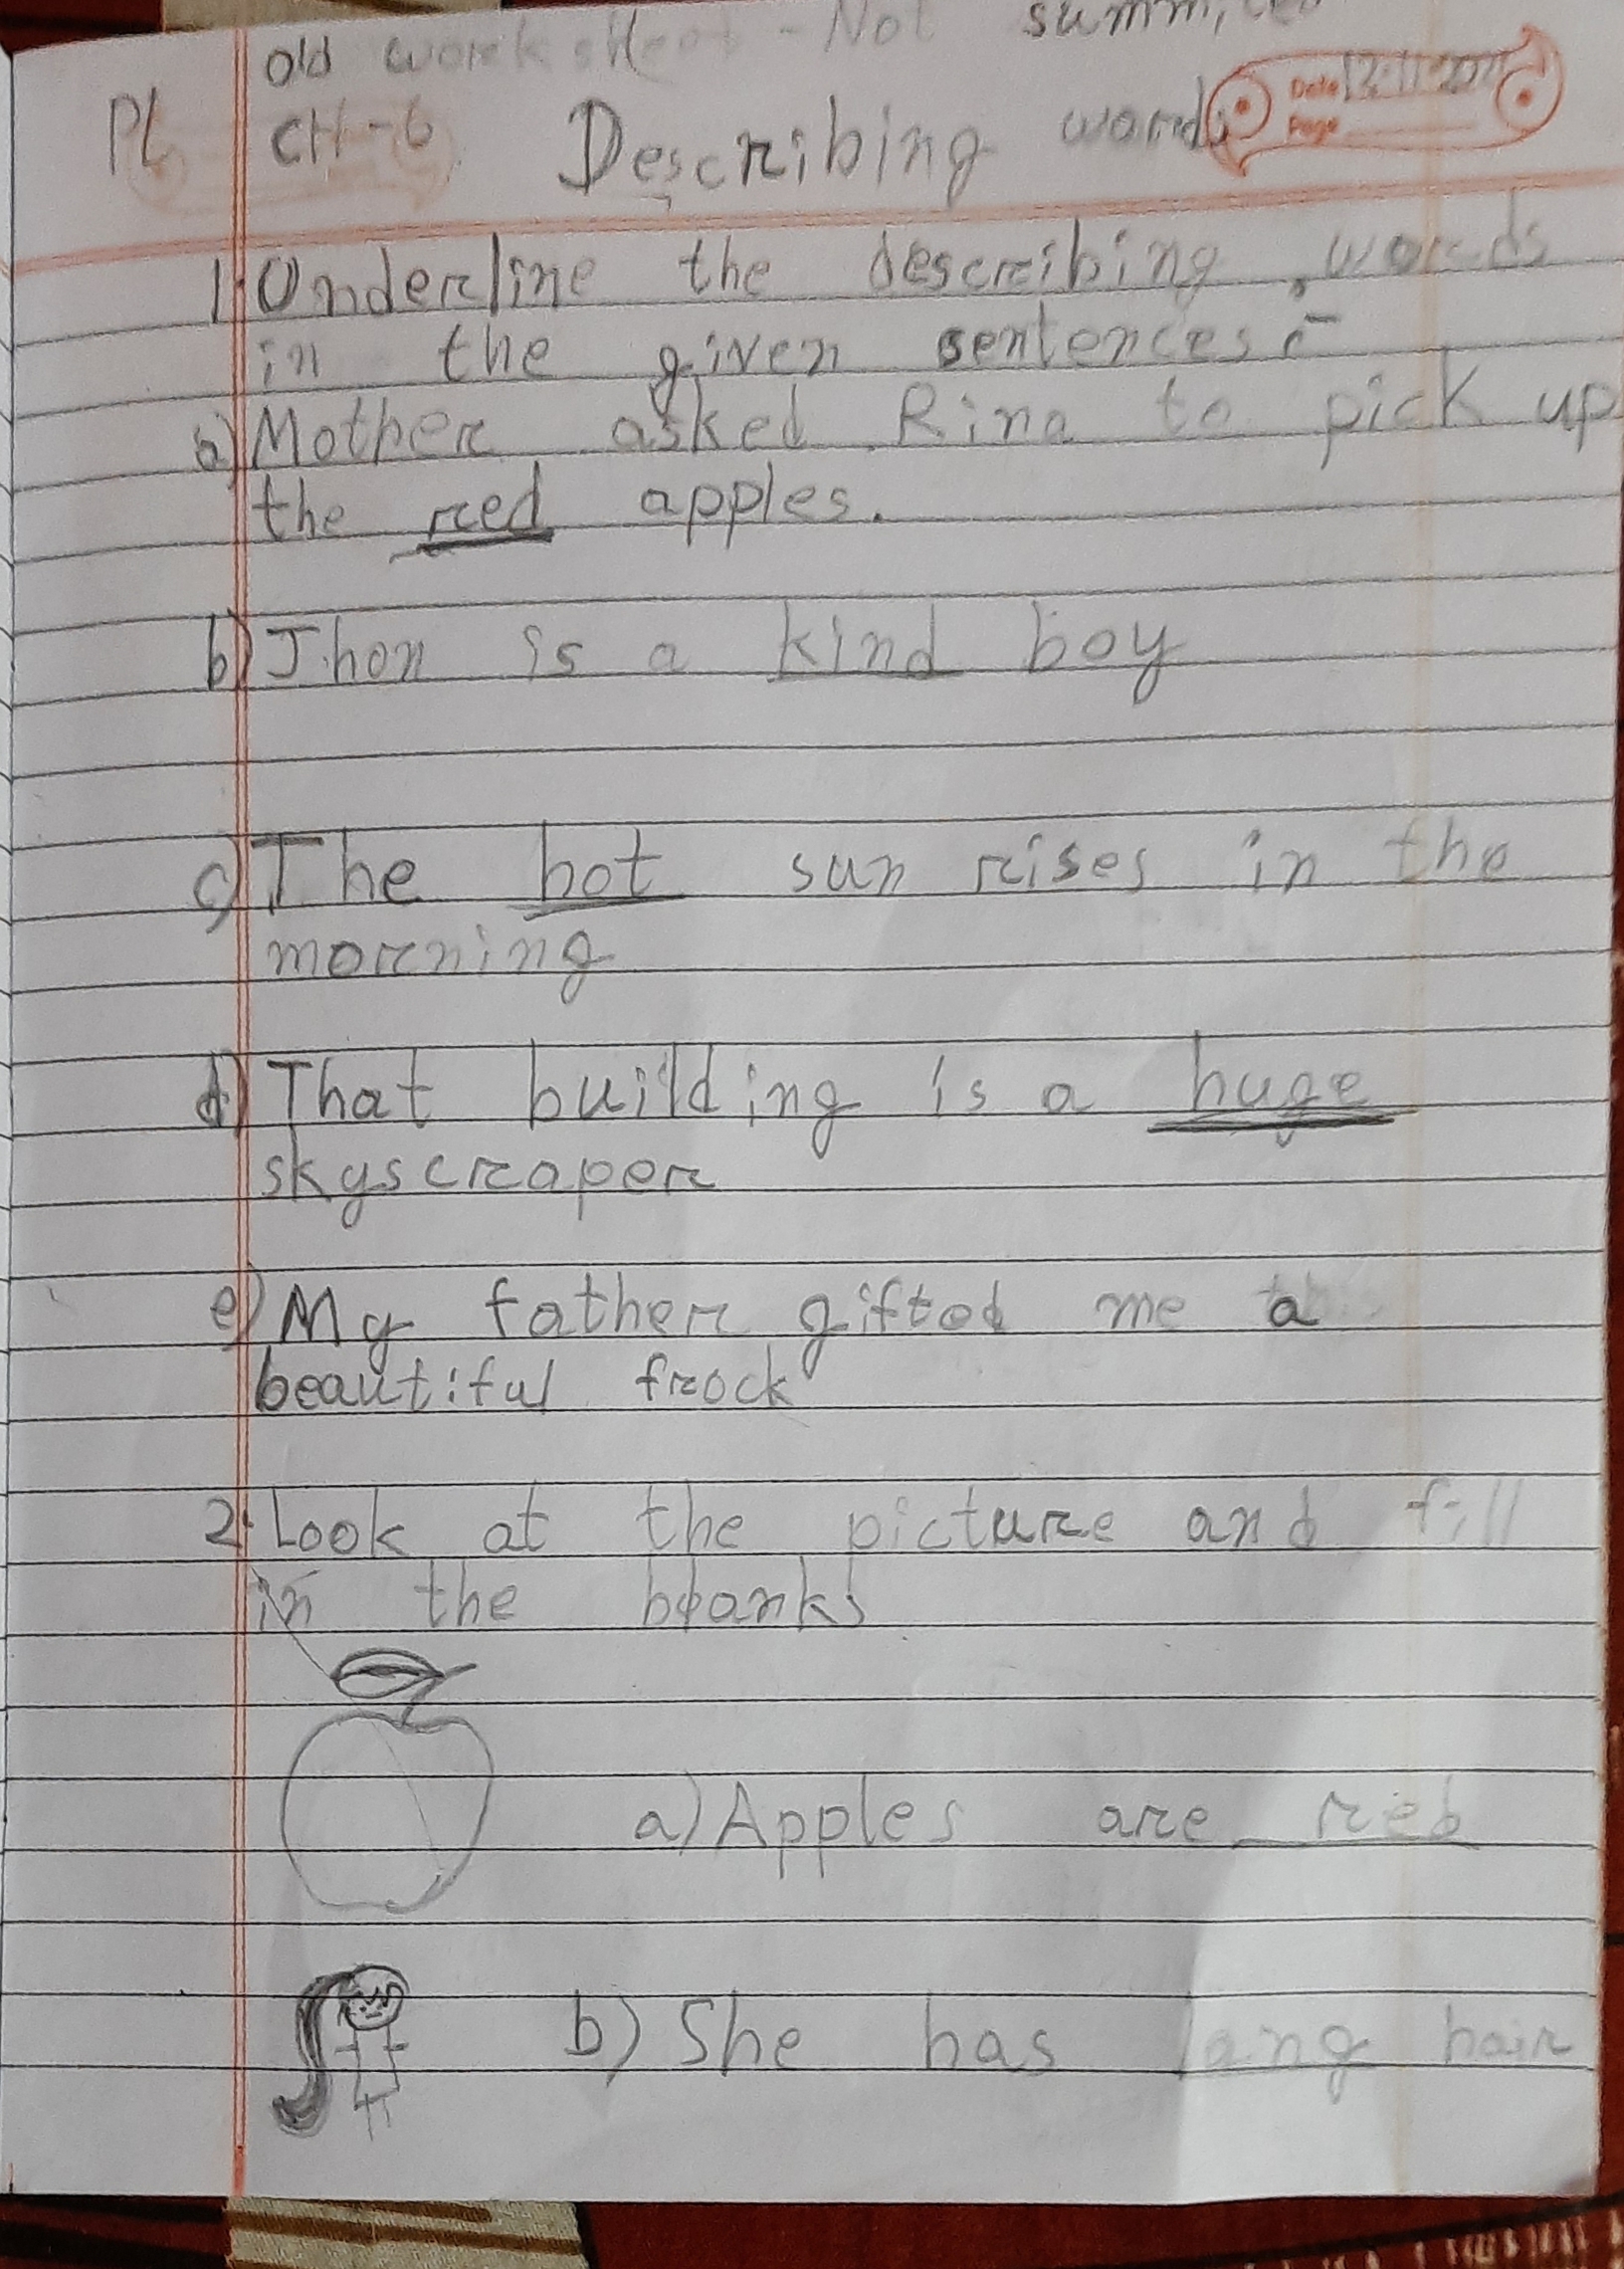 old worksheet - Not summited
PL CH-6 Describing words
Date 12-11-202
Page
1. Underline the describing words
in the given sentences :-
a) Mother asked Rina to pick up
the red apples.
b) Jhon is a kind boy
c) The hot sun rises in the
morning
d) That building is a huge
skyscraper
e) My father gifted me a
beautiful frock
2. Look at the picture and fill
in the blanks
a) Apples are red
b) She has long hair